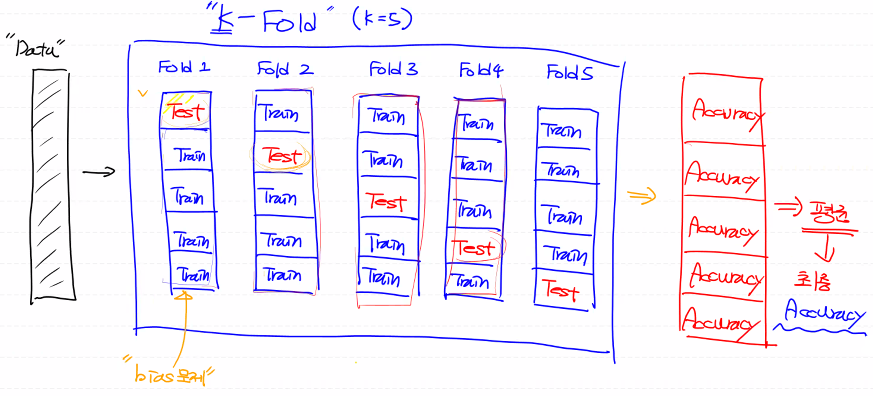 "K-Fold" (K=5)
"Data"
Fold 1
Test
Train
Train
Train
Train
Fold 2
Train
Test
Train
Train
Train
Fold 3
Train
Train
Test
Train
Train
Fold 4
Train
Train
Train
Test
Train
Fold 5
Train
Train
Train
Train
Test
Accuracy
Accuracy
Accuracy
Accuracy
Accuracy
평균
최종
Accuracy
"bias문제"